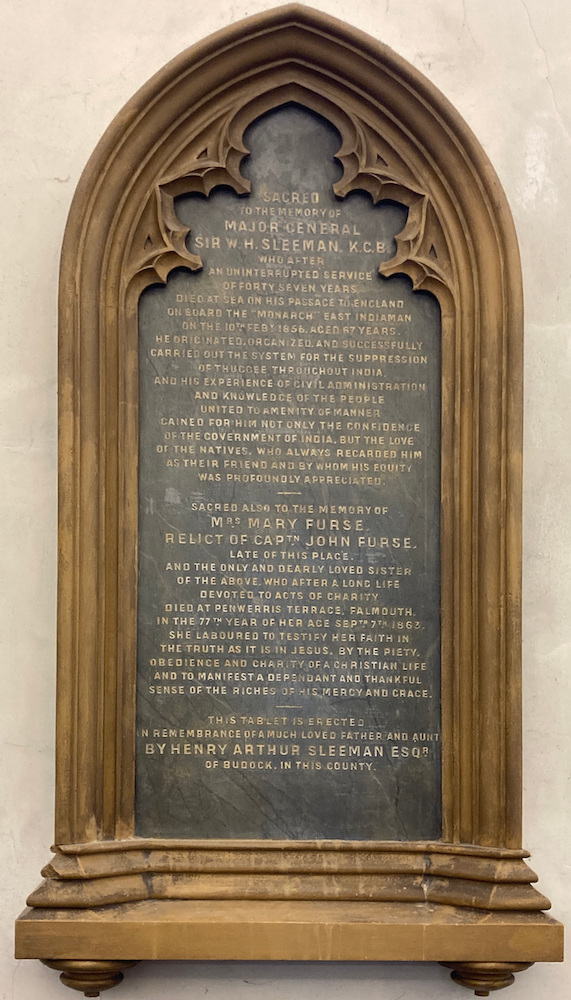 SACRED
TO THE MEMORY OF
MAJOR GENERAL
SIR W. H. SLEEMAN, K.C.B.
WHO AFTER
AN UNINTERRUPTED SERVICE
OF FORTY SEVEN YEARS
DIED AT SEA ON HIS PASSAGE TO ENGLAND
ON BOARD THE "MONARCH" EAST INDIAMAN
ON THE 10TH FEBY 1856, AGED 67 YEARS.
HE ORIGINATED, ORGANIZED, AND SUCCESSFULLY
CARRIED OUT THE SYSTEM FOR THE SUPPRESSION
OF THUGGEE THROUGHOUT INDIA,
AND HIS EXPERIENCE OF CIVIL ADMINISTRATION
AND KNOWLEDGE OF THE PEOPLE
UNITED TO AMENITY OF MANNER
GAINED FOR HIM NOT ONLY THE CONFIDENCE
OF THE GOVERNMENT OF INDIA, BUT THE LOVE
OF THE NATIVES, WHO ALWAYS REGARDED HIM
AS THEIR FRIEND AND BY WHOM HIS EQUITY
WAS PROFOUNDLY APPRECIATED.
SACRED ALSO TO THE MEMORY OF
MRS MARY FURSE,
RELICT OF CAPTN JOHN FURSE,
LATE OF THIS PLACE,
AND THE ONLY AND DEARLY LOVED SISTER
OF THE ABOVE, WHO AFTER A LONG LIFE
DEVOTED TO ACTS OF CHARITY
DIED AT PENWERRIS TERRACE, FALMOUTH,
IN THE 77TH YEAR OF HER AGE SEPTR 7TH 1863.
SHE LABOURED TO TESTIFY HER FAITH IN
THE TRUTH AS IT IS IN JESUS, BY THE PIETY,
OBEDIENCE AND CHARITY OF A CHRISTIAN LIFE
AND TO MANIFEST A DEPENDANT AND THANKFUL
SENSE OF THE RICHES OF HIS MERCY AND GRACE.
THIS TABLET IS ERECTED
IN REMEMBRANCE OF A MUCH LOVED FATHER AND AUNT
BY HENRY ARTHUR SLEEMAN ESQR
OF BUDOCK, IN THIS COUNTY.